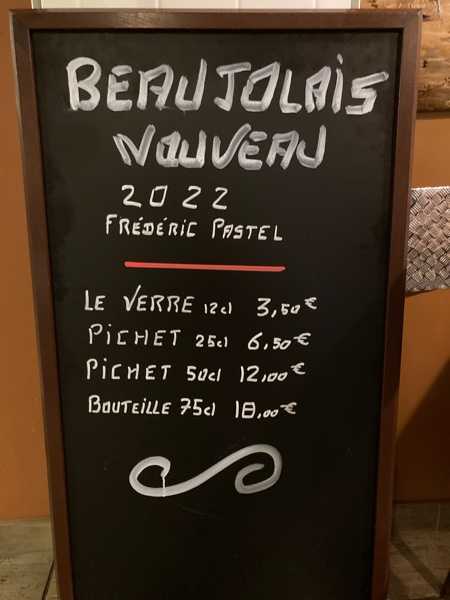 BEAUJOLAIS
NOUVEAU
2022
FRÉDÉRIC PASTEL
LE VERRE 12cl 3,50€
PICHET 25cl 6,50€
PICHET 50cl 12,00€
BOUTEILLE 75cl 18,00€